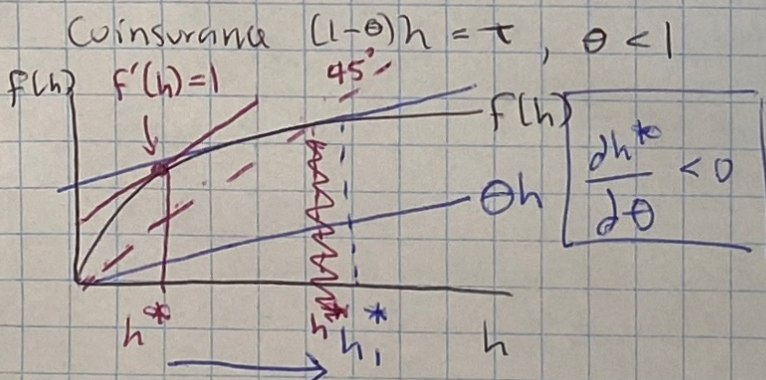 Coinsurance (1-θ)h = τ, θ < 1
f(h) f'(h)=1 45°
f(h)
dh*/dθ < 0
θh
h* h₁* h